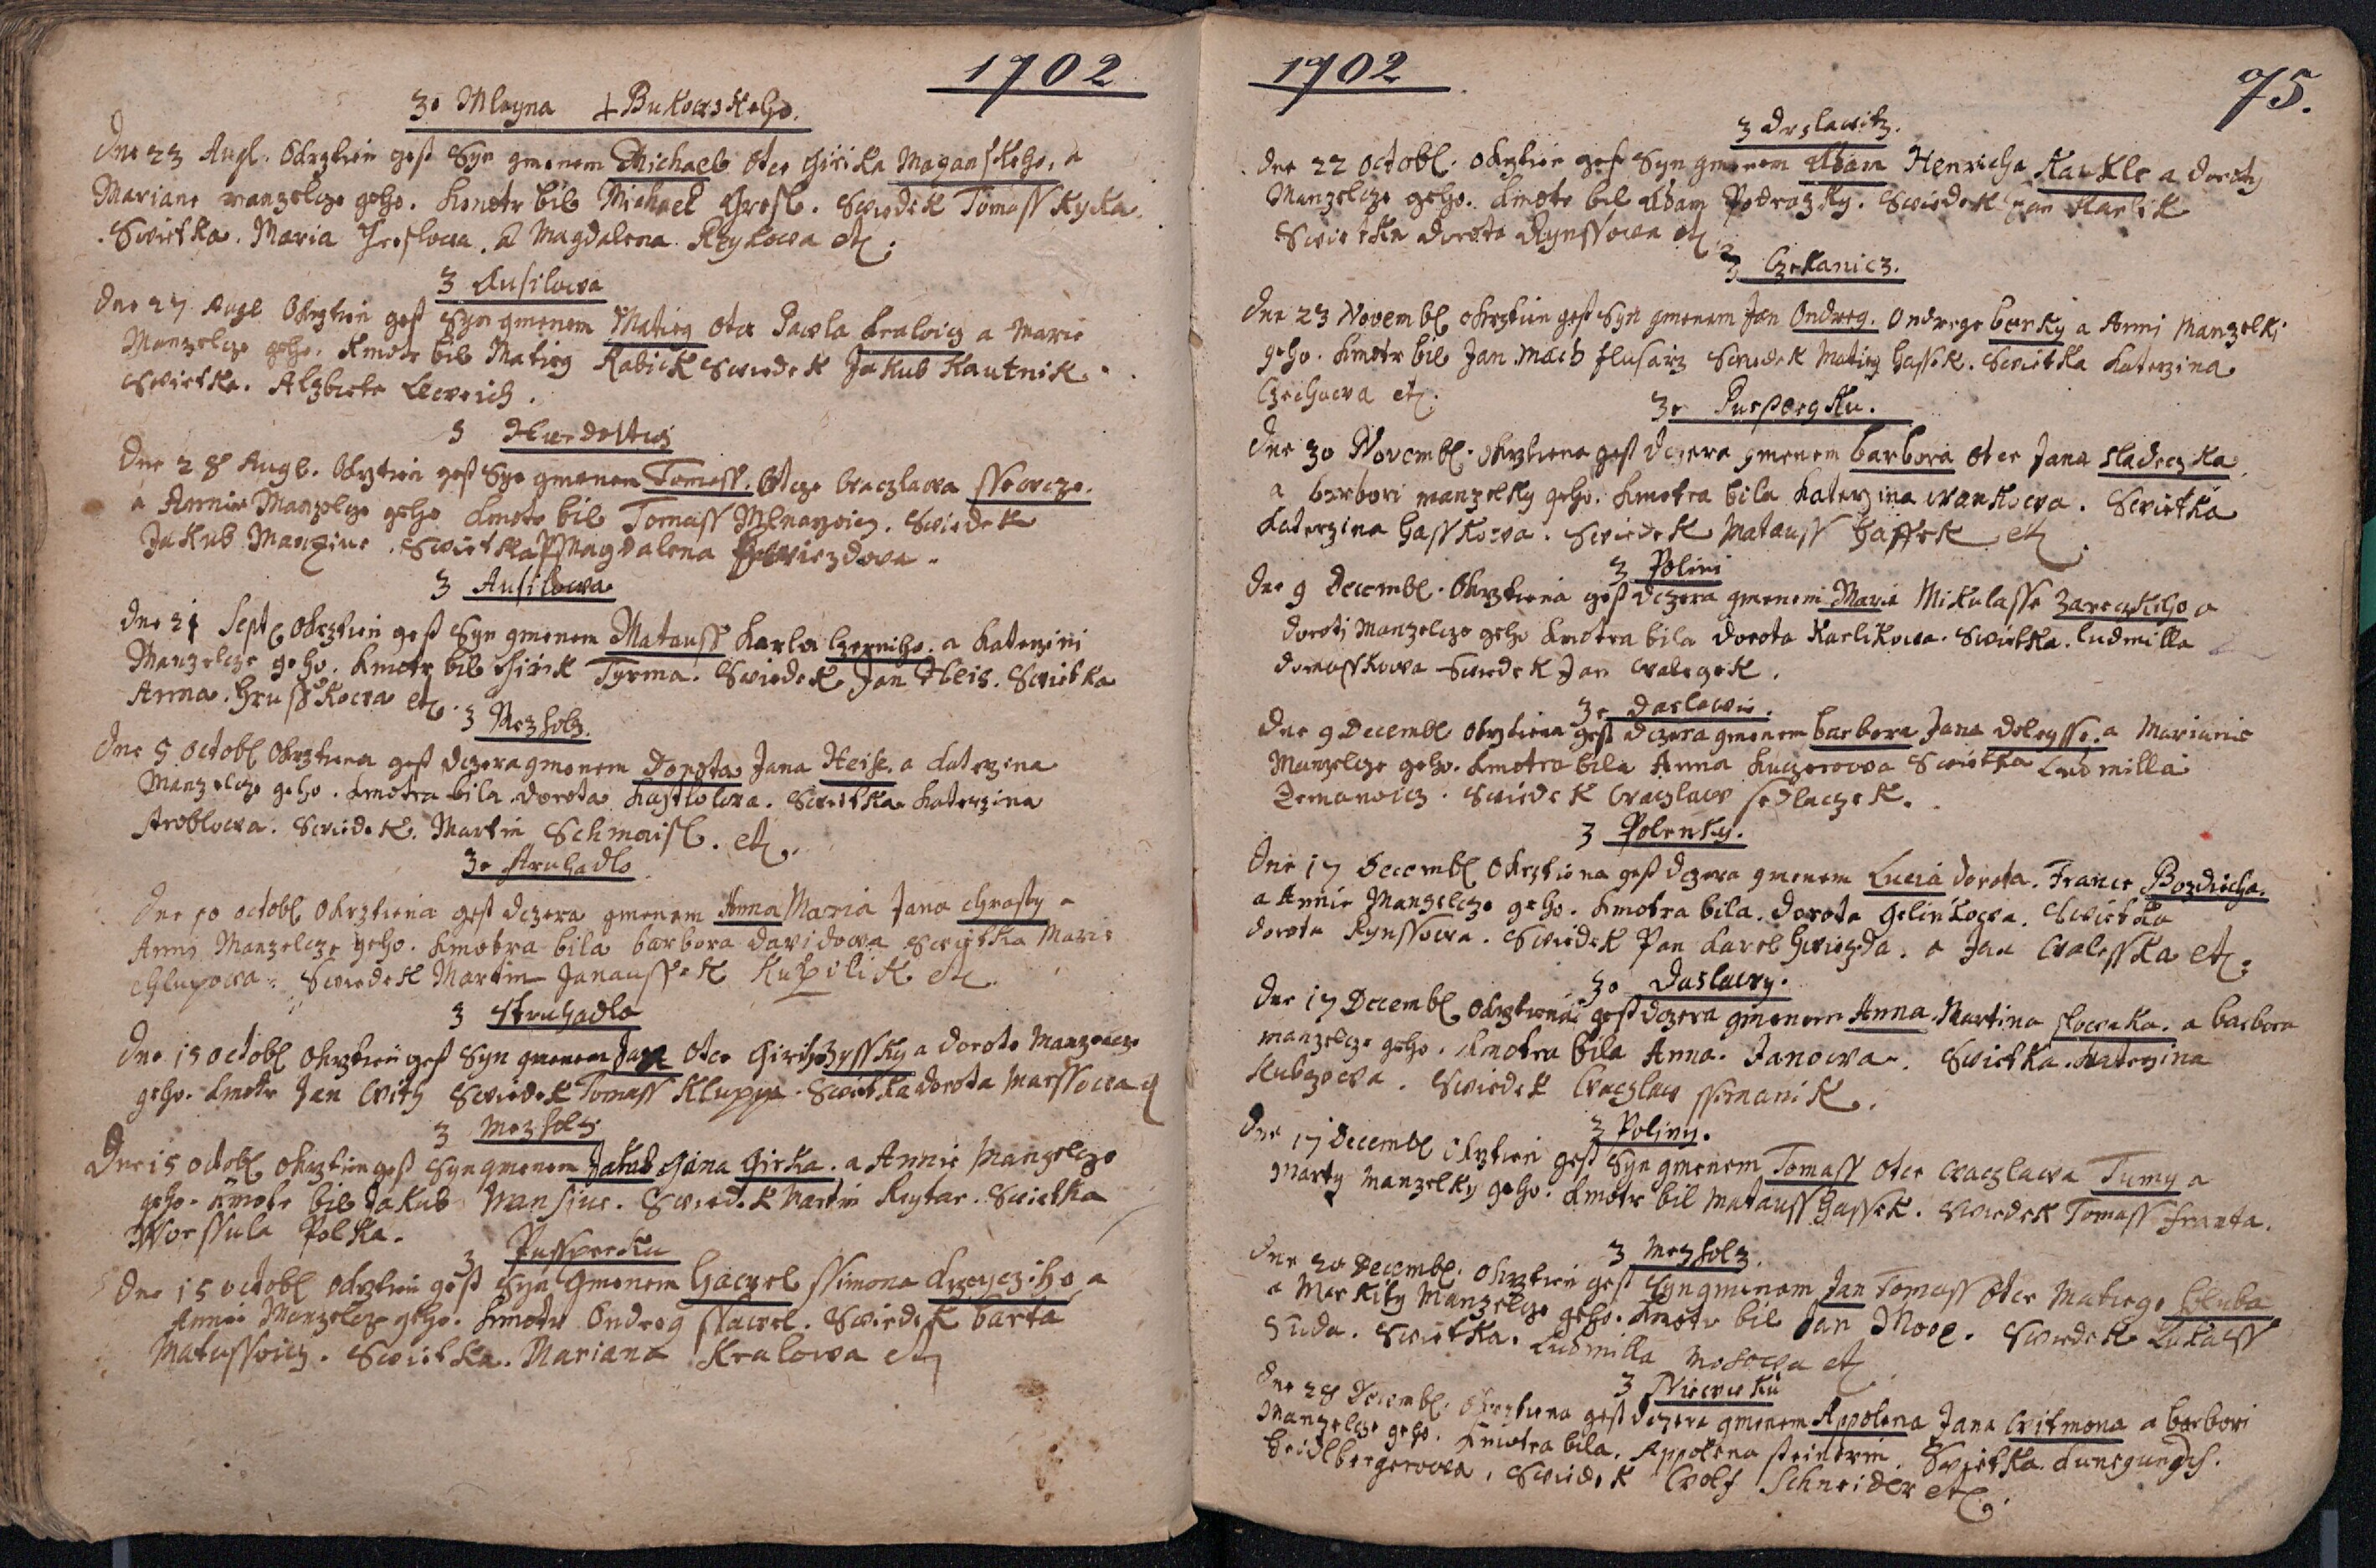 1702
Ze Mlegna Bukowskeho.
Dne 23 Augl. Okrztien gest Syn gmenem Michael otce Girika Maganskeho, a
Mariane manzelcze geho. Kmotr bil Michael Gresl. Swiedek Tomass Kyka.
Swietka. Maria Greslowa. a Magdalena Kykowa etc.
Z Ausilowa
Dne 27 Augl Okrztien gest Syn gmenem Matieg otce Pawla Kralowicz a Marie
Manzelcze geho. Kmotr bil Matieg Rabick Swiedek Jakub Kautnik.
Swietka. Alzbieta
Z
Dne 28 Augl. Okrztien gest Syn gmenem Tomass. Otcze Waczlawa sseweze.
a Annie Manzelcze geho Kmotr bil Tomass Mlnarzowicz. Swiedek
Jakub Manziue. Swietka Magdalena Gwiezdowa.
Z Ausilowa
Dne 21 Sept Okrztien gest Syn gmenem Matauss Karla Czerniho. a Katerzini
Manzelcze geho. Kmotr bil Girik Tyrma. Swiedek Jan Heis. Swietka
Anna. Grusskowa etc.
Z Mezholz.
Dne 5 octobl Okrztiena gest dczera gmenem Dorota Jana Heise. a Katerzina
Manzelcze geho. Kmotra bila Dorota Kastlowa. Swietka Katerzina
stroblowa. Swiedek. Martin Schmaisl. etc.
Ze struhadlo
Dne 10 octobl Okrztiena gest dczera gmenem Anna Maria Jana chrasty a
Anni Manzelcze geho. Kmotra bila barbora Davidowa Swietka Marie
chlupowa. Swiedek Martin Janaussek Kupilik etc.
Z struhadla
Dne 15 octobl Okrztien gest Syn gmenem Jan otce Giriho Zyssky a Dorote Manzelcze
geho. Kmotr Jan Wity Swiedek Tomass Kluppa. Swietka Dorota Marssowa
Z Mezholz
Dne 15 octobl Okrztien gest Syn gmenem Jakub Jana Girka. a Annie Manzelcze
geho. Kmotr bil Jakub Mansiue. Swiedek Martin Reytar. Swietka
Worssula Polka.
Z Pussperku
Dne 15 octobl Okrztien gest Syn gmenem Hawel ssimona a
Annie Manzelcze geho. Kmotr Ondreg Hawel. Swiedek barta
Matussowicz. Swietka. Mariana Kralowa etc
1702
75.
Z Drslawitz.
Dne 22 octobl. okrztien gest Syn gmenem Adam Henricha Kaukle a doroty
Manzelcze geho. Kmotr bil Adam Podrazky. Swiedek Jan Karlik
Swietka dorota Rynssowa etc
Z Czekanicz.
Dne 23 Novembl okrztien gest Syn gmenem Jan Ondreg. Ondrege burky a Anni Manzelki
geho. Kmotr bil Jan mach slusarz Swiedek Matieg Gassek. Swietka Katerzina
Czechowa etc.
Ze Puspergku.
Dne 30 Novembl. okrztiena gest dczera gmenem barbora otce Jana sladeczka
a barbori manzelky geho. Kmotra bila Katerzina wankowa. Swietka
Katerzina Gasskowa. Swiedek Matauss Gassek etc
Z Polini
Dne 9 Decembl. Okrztiena gest dczera gmenem Marie Mikulasse Zareczkeho a
doroti Manzelcze geho Kmotra bila dorota Karlikowa. Swietka. ludmilla
domasskowa Swiedek Jan walegek.
Ze Daslawie.
Dne 9 Decembl Okrztiena gest dczera gmenem barbora Jana doleysse. a Marianie
Manzelcze geho. Kmotra bila Anna Kuczerowa Swietka Ludmilla
Zemanowicz. Swiedek Waczlaw sedlaczek.
Z Polenky.
Dne 17 Decembl Okrztiena gest dczera gmenem Lucia dorota. France Bozdiecha.
a Annie Manzelcze geho. Kmotra bila. dorota Gelinkowa. Swietka
dorota Rynssowa. Swiedek Pan Karel Gwiezda. a Jan Walesska etc.
Ze Daslawy.
Dne 17 Decembl Okrztiena gest dczera gmenem Anna Martina slowaka. a barbora
manzelcze geho. Kmotra bila Anna. Janowa. Swietka. Katerzina
Kubzowa. Swiedek Waczlaw ssimanik.
Z Poliny.
Dne 17 Decembl Okrztien gest Syn gmenem Tomass otce Waczlawa Tumy a
Marty Manzelky geho. Kmotr bil Matauss Gassek. Swiedek Tomass franta.
Z Mezholz.
Dne 20 Decembl. Okrztien gest Syn gmenem Jan Tomass otce Matiege Hluba
a Markity Manzelcze geho. Kmotr bil Jan Moos. Swiedek Lukass
suda. Swietka. Ludmilla Mosowa etc
Z Niewieku
Dne 28 Decembl. Okrztiena gest dczera gmenem Appolena Jana Witmona a barbori
Manzelcze geho. Kmotra bila. Appolena steinerin. Swietka. Kunegundis.
heidlbergerowa. Swiedek Wolf Schneider etc.